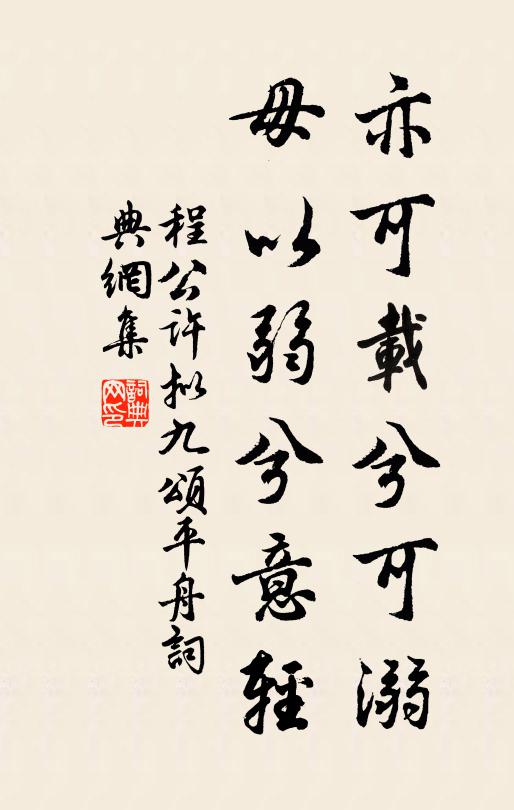 亦可載兮可溺
毋以弱兮意輕
程公許拟九頌平舟詞
典網集
詞典
网印